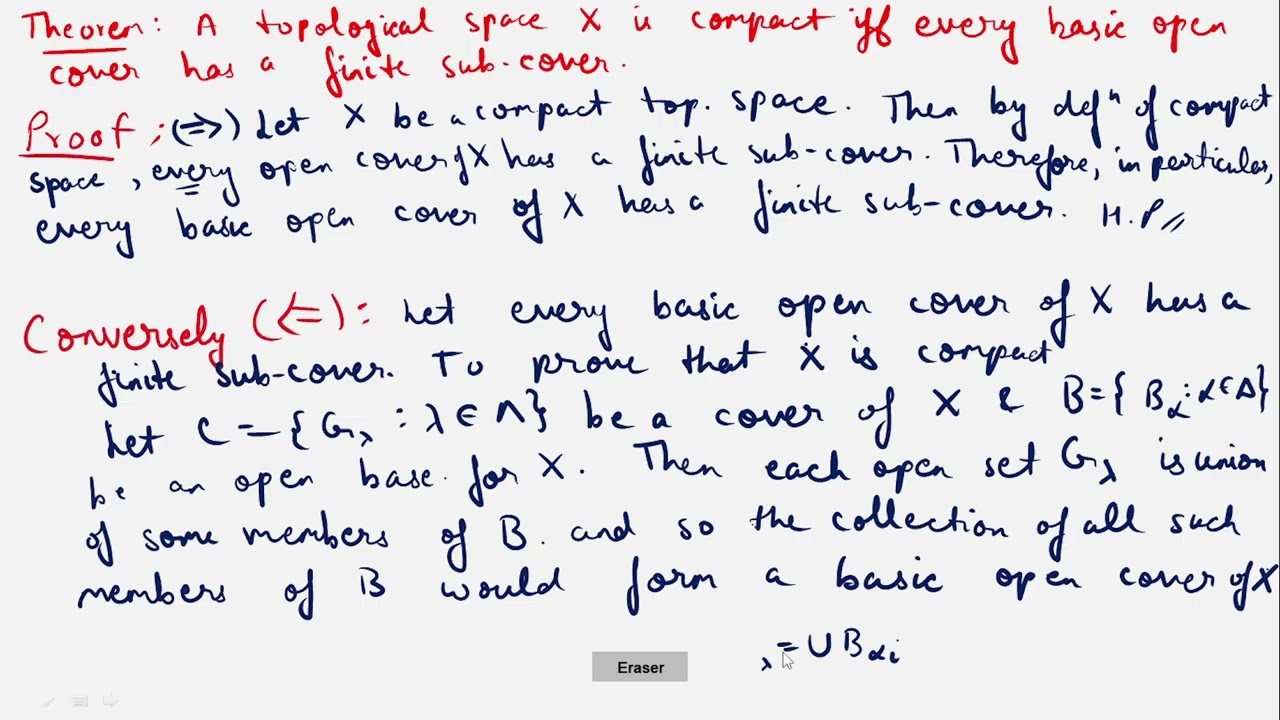 Theorem: A topological space X is compact iff every basic open
cover has a finite sub-cover.
Proof: (⇒) Let X be a compact top. space. Then by defⁿ of compact
space, every open cover of X has a finite sub-cover. Therefore, in particular,
every basic open cover of X has a finite sub-cover. H.P//
Conversely (⇐): Let every basic open cover of X has a
finite sub-cover. To prove that X is compact
Let C = {G_λ : λ ∈ Λ} be a cover of X & B = {B_α : α ∈ Δ}
be an open base for X. Then each open set G_λ is union
of some members of B. and so the collection of all such
members of B would form a basic open cover of X
λ = ∪ B_αi
Eraser